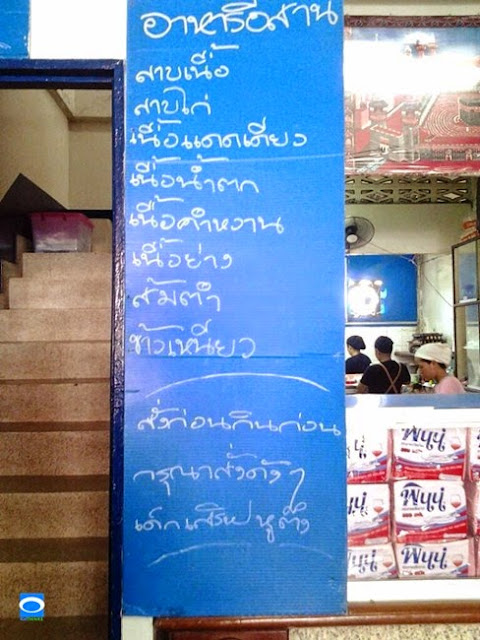 อาหารอีสาน
ลาบเนื้อ
ลาบไก่
เนื้อแดดเดียว
เนื้อน้ำตก
เนื้อคำหวาน
เนื้อย่าง
ส้มตำ
ข้าวเหนียว
สั่งก่อนกินก่อน
กรุณาสั่งดังๆ
เด็กเสริฟหูตึง
พินนุ่
พินนุ่
พินนุ่